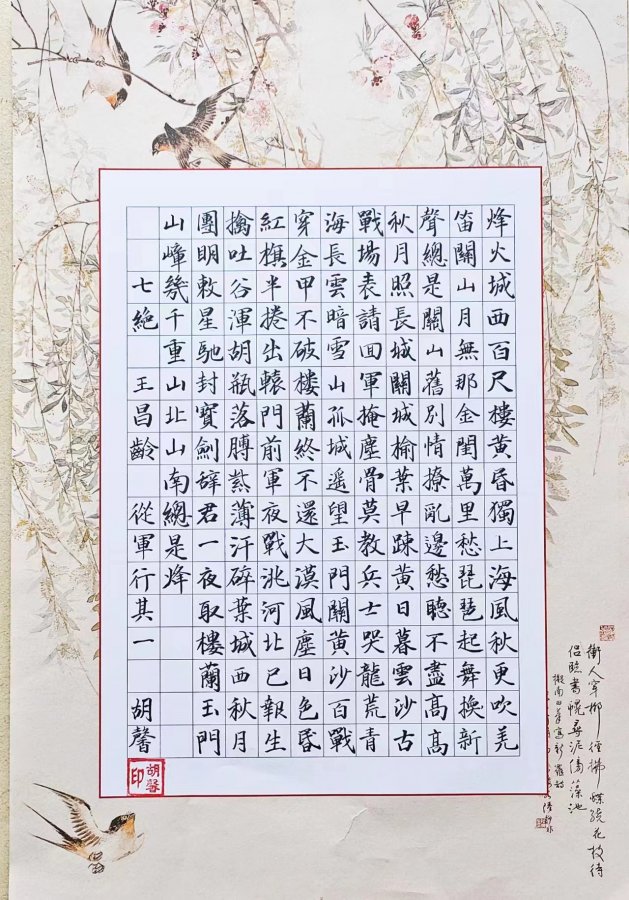 烽火城西百尺樓黃昏獨上海風秋更吹羌
笛關山月無那金閨萬里愁琵琶起舞換新
聲總是關山舊別情撩亂邊愁聽不盡高高
秋月照長城關城榆葉早踈黃日暮雲沙古
戰場表請回軍掩塵骨莫教兵士哭龍荒青
海長雲暗雪山孤城遥望玉門關黃沙百戰
穿金甲不破樓蘭終不還大漠風塵日色昏
紅旗半捲出轅門前軍夜戰洮河北已報生
擒吐谷渾胡瓶落膊薄汗碎葉城西秋月
團明敕星馳封寶劍辭君一夜取樓蘭玉門
山嶂幾千重山北山南總是烽
七絕 王昌齡 從軍行其一 胡馨
胡馨印
衝人穿柳徑拂蝶繞花枝待
侶臨書幌尋泥傍藻池